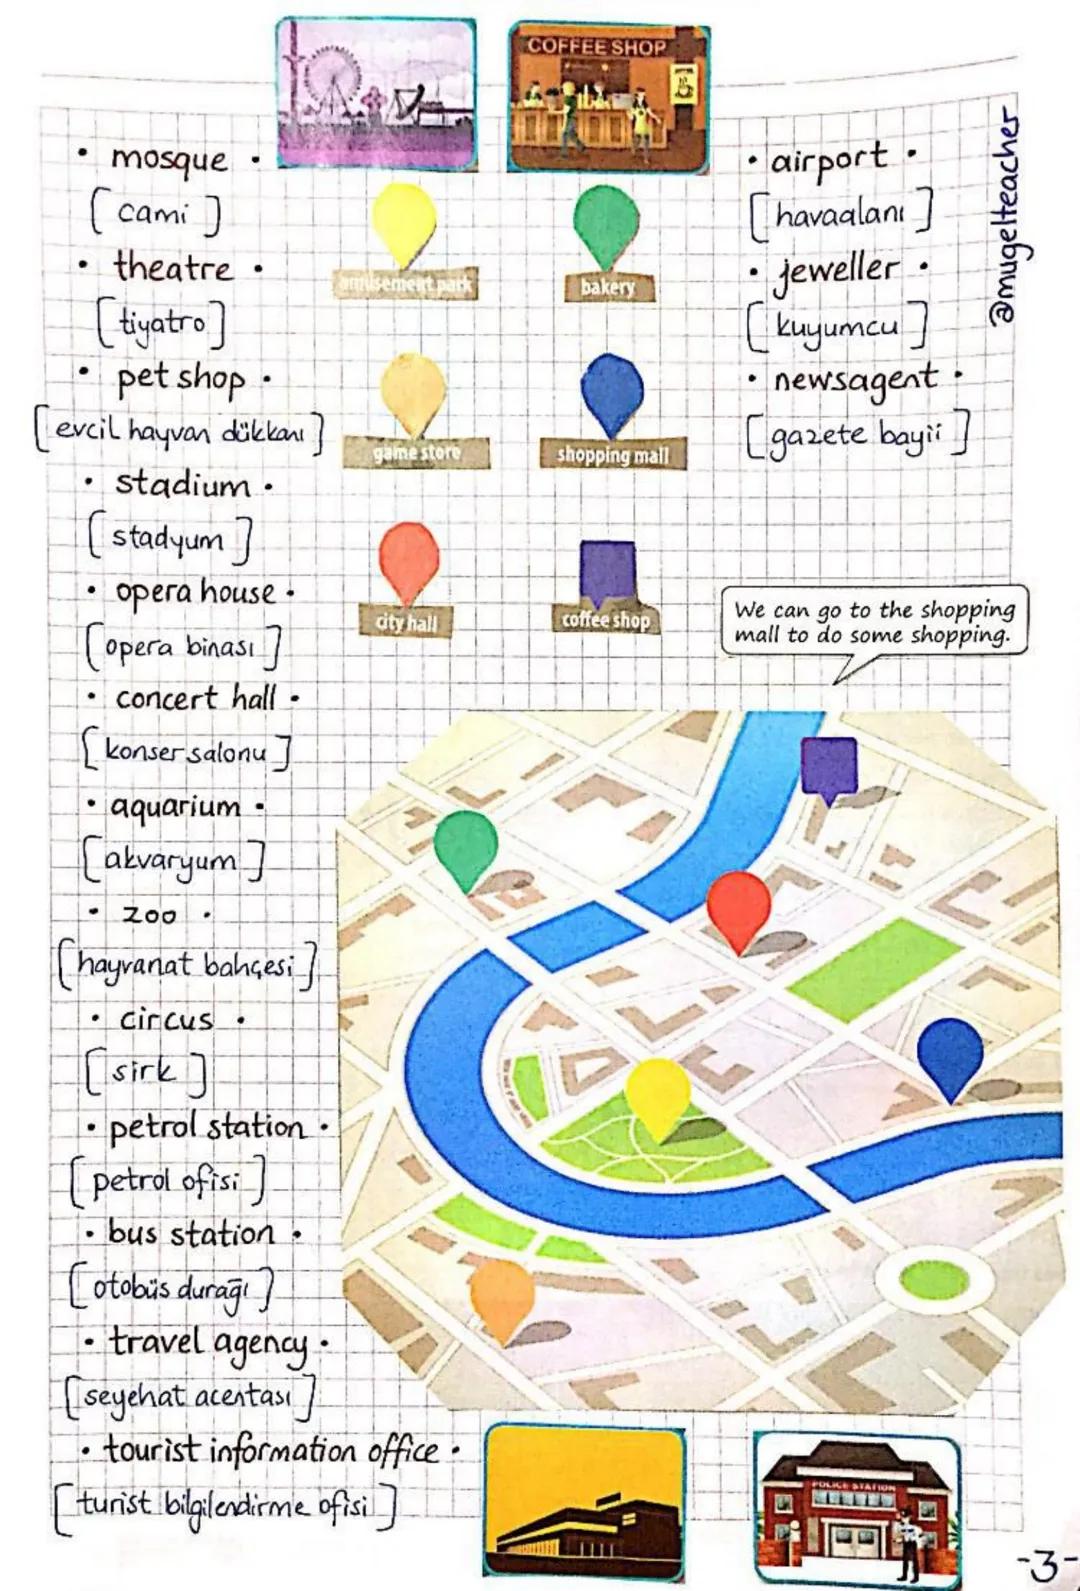 COFFEE SHOP
• mosque •
[cami]
• theatre •
[tiyatro]
• pet shop •
[evcil hayvan dükkanı]
• stadium •
[stadyum]
• opera house •
[opera binası]
• concert hall •
[konser salonu]
• aquarium •
[akvaryum]
• zoo •
[hayvanat bahçesi]
• circus •
[sirk]
• petrol station •
[petrol ofisi]
• bus station •
[otobüs durağı]
• travel agency •
[seyehat acentası]
• tourist information office •
[turist bilgilendirme ofisi]
amusement park
bakery
game store
shopping mall
city hall
coffee shop
• airport •
[havaalanı]
• jeweller •
[kuyumcu]
• newsagent •
[gazete bayii]
@mugelteacher
We can go to the shopping
mall to do some shopping.
POLICE STATION
-3-